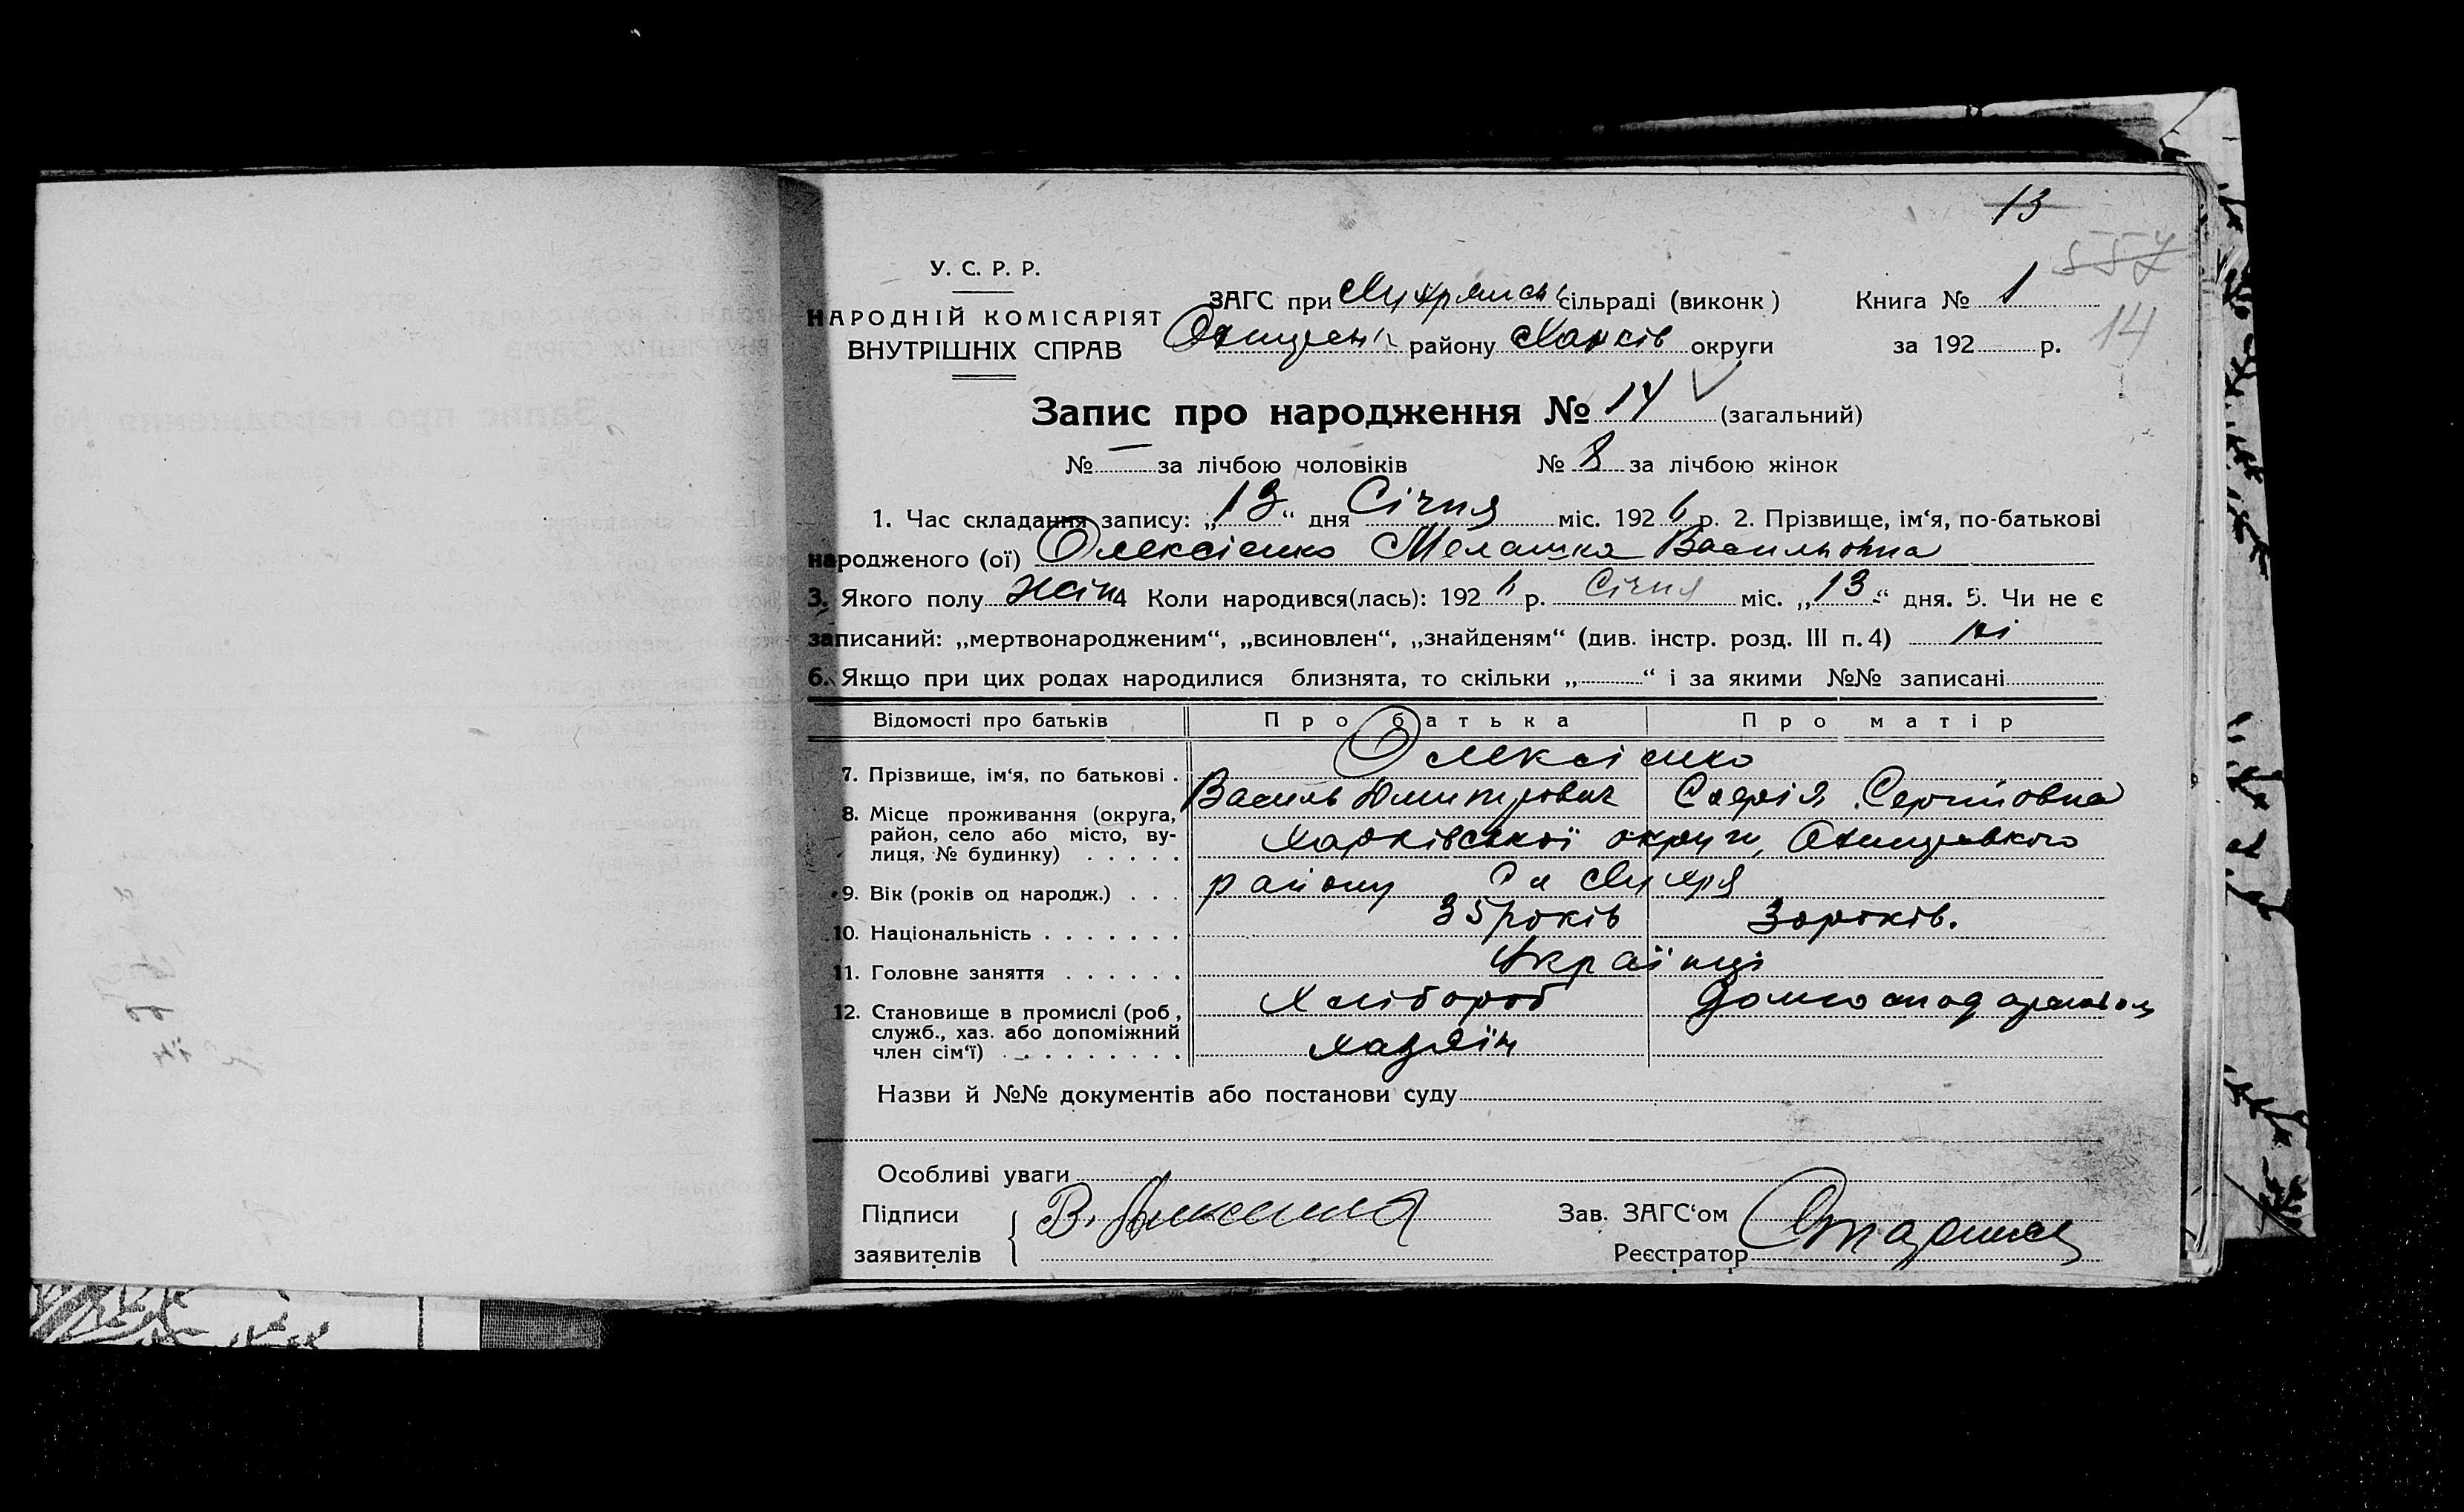 13
557
У. С. Р. Р.
НАРОДНІЙ КОМІСАРІЯТ
ВНУТРІШНІХ СПРАВ
ЗАГС при сільраді (виконк)
району Харків округи
Книга № 1
за 192 р.
14
Запис про народження № 14 (загальний)
№ — за лічбою чоловіків № 8 за лічбою жінок
1. Час складання запису: „13“ дня Січня міс. 1926 р. 2. Прізвище, ім‘я, по-батькові
народженого (ої) Олексієнко Мелашка Васильовна
3. Якого полу жін 4 Коли народився(лась): 1926 р. Січня міс. „13“ дня. 5. Чи не є
записаний: „мертвонародженим“, „всиновлен“, „знайденям“ (див. інстр. розд. III п. 4) ні
6. Якщо при цих родах народилися близнята, то скільки „ “ і за якими №№ записані
Відомості про батьків Про батька Про матір
7. Прізвище, ім‘я, по батькові . Олексієнко
Василь Дмитрович Софія Сергіївна
8. Місце проживання (округа,
район, село або місто, вулиця, № будинку) . . . . . Харківської округи,
9. Вік (років од народж.) . . . району
35 років 30 років.
10. Національність . . . . . . .
Українці
11. Головне заняття . . . . . .
Хлібороб
12. Становище в промислі (роб,
служб., хаз. або допоміжний
член сім‘ї) . . . . . . . . . хазяїн
Назви й №№ документів або постанови суду
Особливі уваги
Підписи
заявителів
В.
Зав. ЗАГС‘ом
Реєстратор